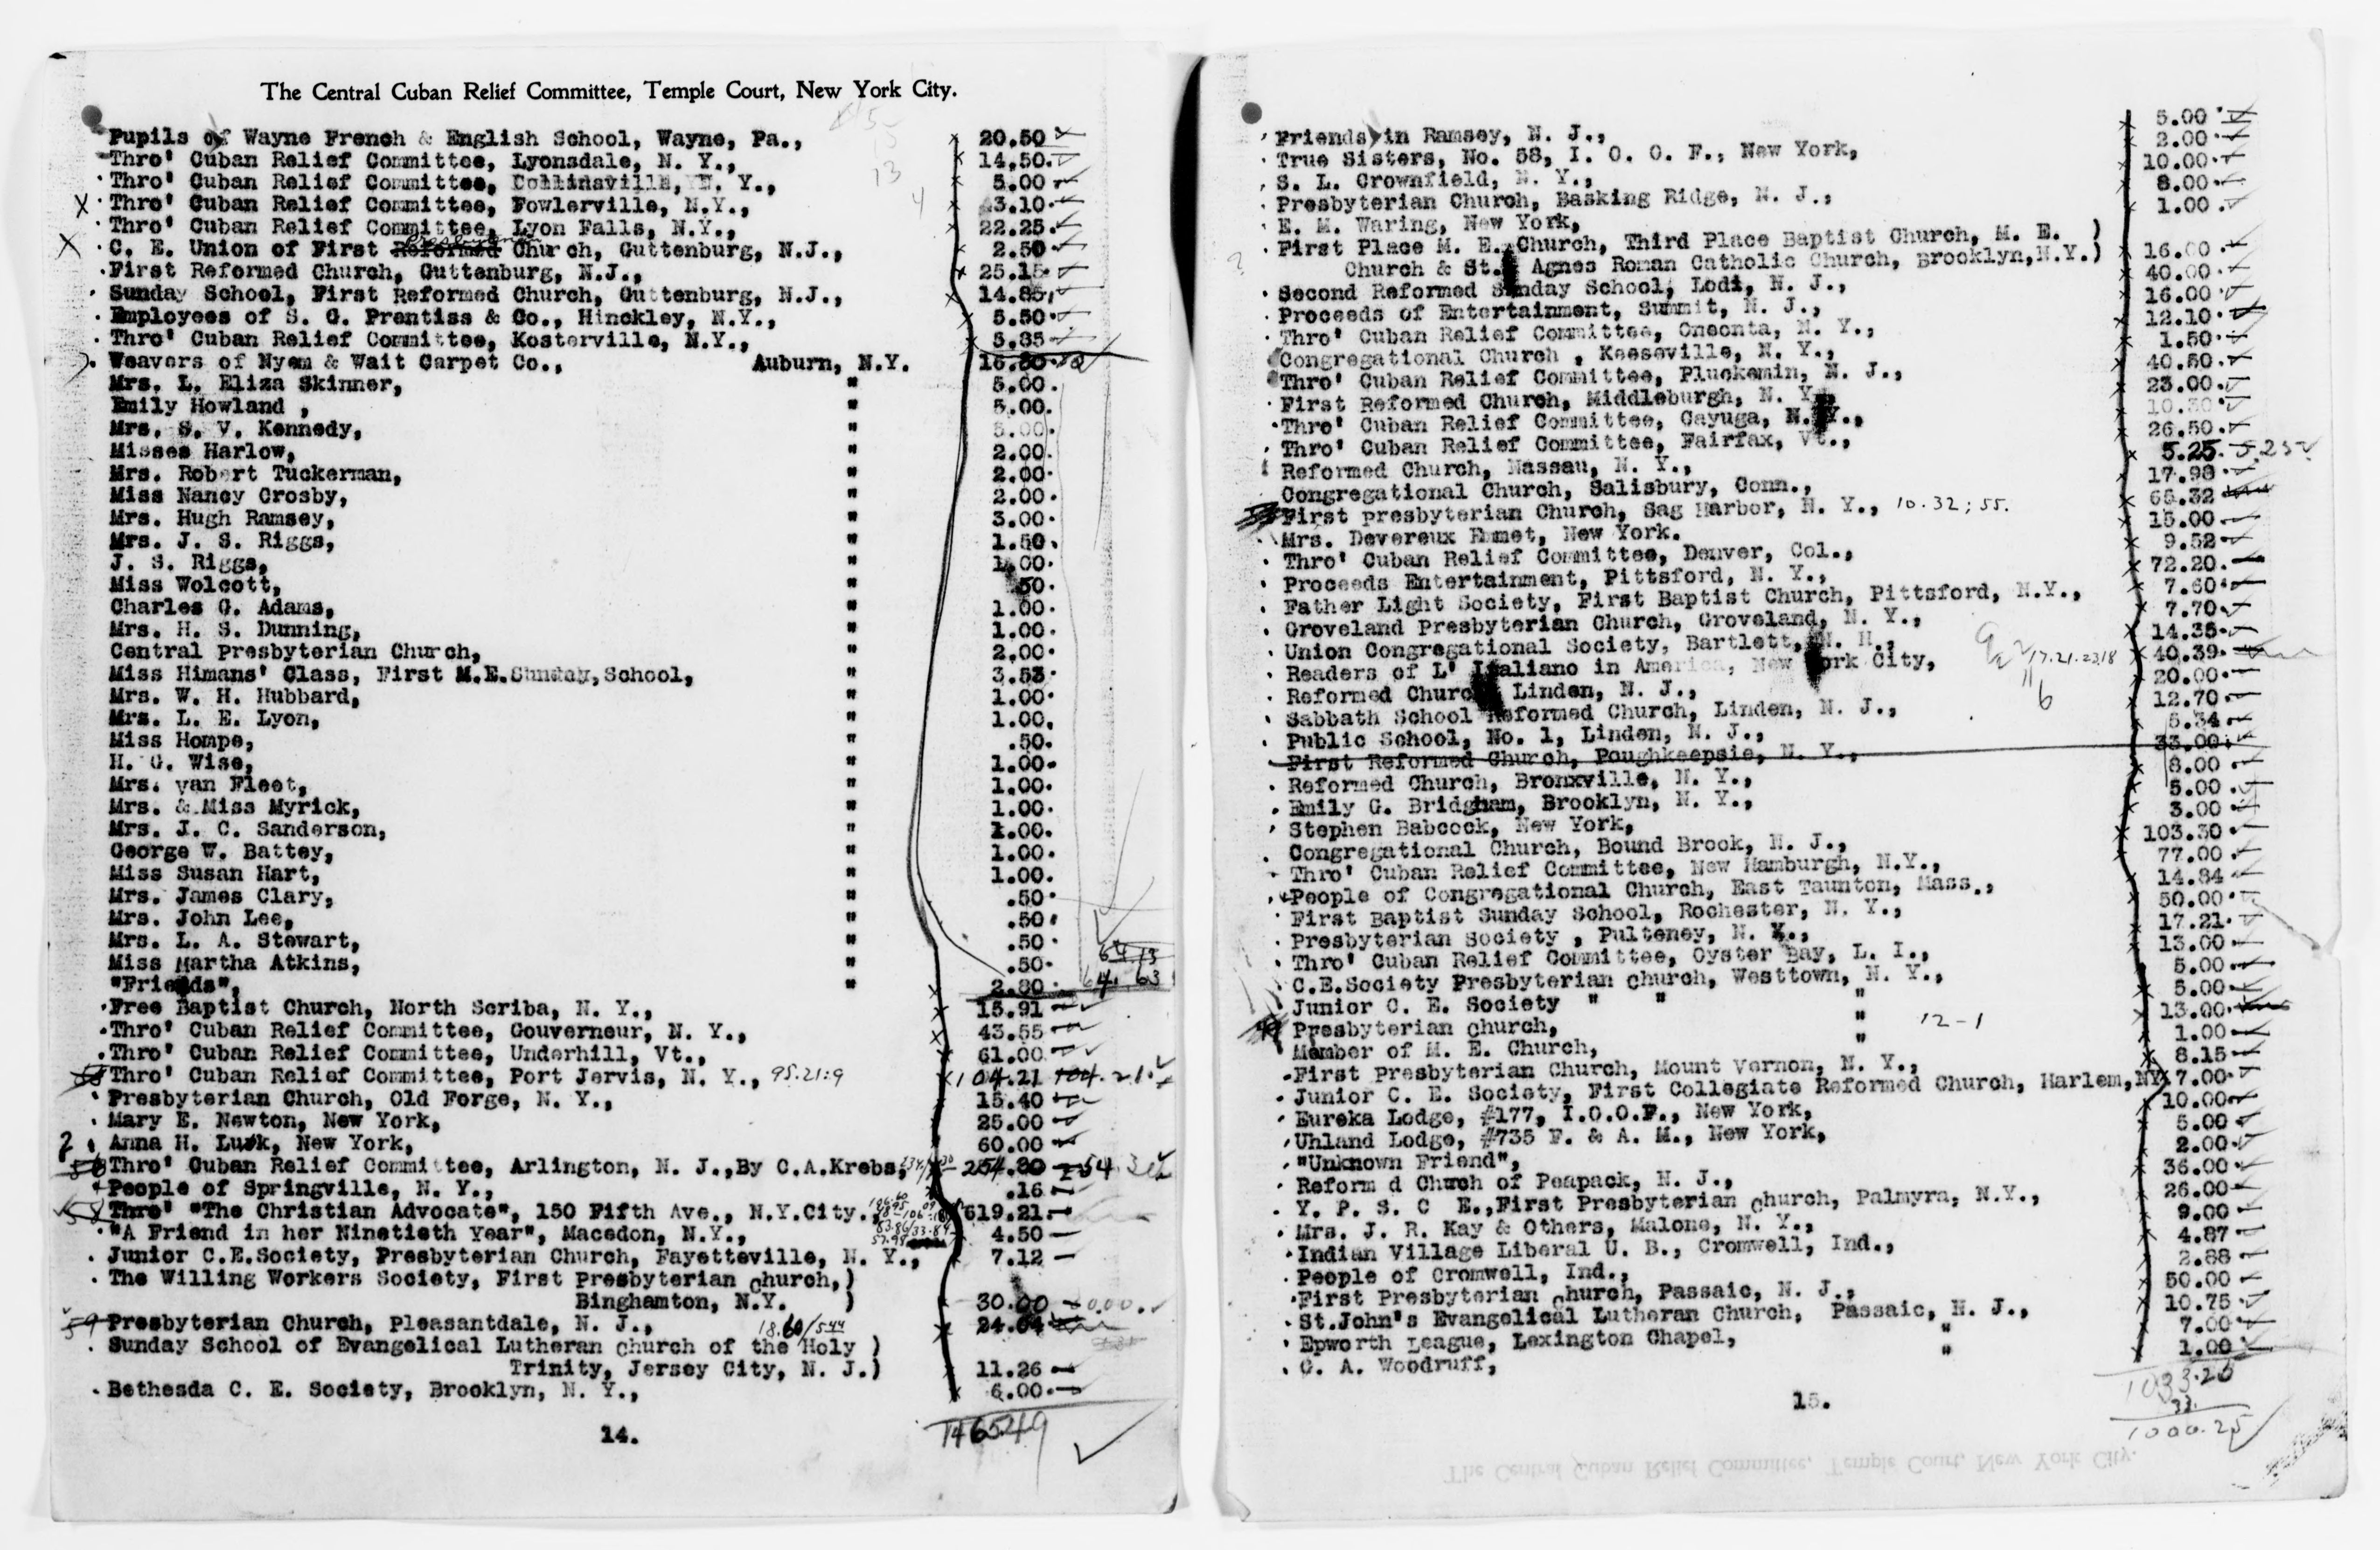 The Central Cuban Relief Committee, Temple Court, New York City.
Pupils of Wayne French & English School, Wayne, Pa., 20.50
Thro' Cuban Relief Committee, Lyonsdale, N. Y., 14.50.
Thro' Cuban Relief Committee, Collinsville, N. Y., 5.00
X Thro' Cuban Relief Committee, Fowlerville, N.Y., 3.10
Thro' Cuban Relief Committee, Lyon Falls, N.Y., 22.25
X C. E. Union of First Reformed Church, Guttenburg, N.J., 2.50
First Reformed Church, Guttenburg, N.J., 25.15
Sunday School, First Reformed Church, Guttenburg, N.J., 14.85,
Employees of S. G. Prentiss & Co., Hinckley, N.Y., 5.50
Thro' Cuban Relief Committee, Kosterville, N.Y., 5.35
Weavers of Nyem & Wait Carpet Co., Auburn, N.Y. 16.80
Mrs. L. Eliza Skinner, " 5.00.
Emily Howland , " 5.00.
Mrs. S. V. Kennedy, " 5.00.
Misses Harlow, " 2.00.
Mrs. Robert Tuckerman, " 2.00.
Miss Nancy Crosby, " 2.00.
Mrs. Hugh Ramsey, " 3.00.
Mrs. J. S. Riggs, " 1.50.
J. S. Riggs, " 1.00.
Miss Wolcott, " .50.
Charles G. Adams, " 1.00.
Mrs. H. S. Dunning, " 1.00.
Central Presbyterian Church, " 2.00.
Miss Himans' Class, First M.E.Sunday,School, " 3.53.
Mrs. W. H. Hubbard, " 1.00.
Mrs. L. E. Lyon, " 1.00.
Miss Hompe, " .50.
H. G. Wise, " 1.00.
Mrs. van Fleet, " 1.00.
Mrs. & Miss Myrick, " 1.00.
Mrs. J. C. Sanderson, " 1.00.
George W. Battey, " 1.00.
Miss Susan Hart, " 1.00.
Mrs. James Clary, " .50.
Mrs. John Lee, " .50.
Mrs. L. A. Stewart, " .50.
Miss Martha Atkins, " .50.
"Friends", " 2.80 64.63
Free Baptist Church, North Scriba, N. Y., 15.91
Thro' Cuban Relief Committee, Gouverneur, N. Y., 43.55
Thro' Cuban Relief Committee, Underhill, Vt., 61.00
Thro' Cuban Relief Committee, Port Jervis, N. Y., 95.21:9 104.21 104.21
Presbyterian Church, Old Forge, N. Y., 15.40
Mary E. Newton, New York, 25.00
? Anna H. Lusk, New York, 60.00
Thro' Cuban Relief Committee, Arlington, N. J.,By C.A.Krebs,
People of Springville, N. Y., .16
58 Thro' "The Christian Advocate", 150 Fifth Ave., N.Y.City., 619.21.
"A Friend in her Ninetieth Year", Macedon, N.Y., 4.50
Junior C.E.Society, Presbyterian Church, Fayetteville, N. Y., 7.12
The Willing Workers Society, First Presbyterian Church,)
Binghamton, N.Y. ) 30.00
59 Presbyterian Church, Pleasantdale, N. J., 18.60/5.44 24.04
Sunday School of Evangelical Lutheran Church of the Holy )
Trinity, Jersey City, N. J.) 11.26
Bethesda C. E. Society, Brooklyn, N. Y., 6.00.
1465.49
14.
Friends in Ramsey, N. J., 5.00
True Sisters, No. 58, I. O. O. F., New York, 2.00
S. L. Crownfield, N. Y., 10.00
Presbyterian Church, Basking Ridge, N. J., 8.00
E. M. Waring, New York, 1.00
First Place M. E. Church, Third Place Baptist Church, M. E. )
Church & St. Agnes Roman Catholic Church, Brooklyn,N.Y.) 16.00
Second Reformed Sunday School, Lodi, N. J., 40.00
Proceeds of Entertainment, Summit, N. J., 16.00
Thro' Cuban Relief Committee, Oneonta, N. Y., 12.10
Congregational Church , Keeseville, N. Y., 1.50
Thro' Cuban Relief Committee, Pluckemin, N. J., 40.50
First Reformed Church, Middleburgh, N. Y., 23.00
Thro' Cuban Relief Committee, Cayuga, N. Y., 10.30
Thro' Cuban Relief Committee, Fairfax, Vt., 26.50
Reformed Church, Nassau, N. Y., 5.25. 5.25
Congregational Church, Salisbury, Conn., 17.98
First Presbyterian Church, Sag Harbor, N. Y., 10.32; 55. 65.32
Mrs. Devereux Emmet, New York. 15.00
Thro' Cuban Relief Committee, Denver, Col., 9.52
Proceeds Entertainment, Pittsford, N. Y., 72.20.
Father Light Society, First Baptist Church, Pittsford, N.Y., 7.60
Groveland Presbyterian Church, Groveland, N. Y., 7.70
Union Congregational Society, Bartlett, N. H., 14.35
Readers of L' Italiano in America, New York City, 17.21.23.18 40.39
Reformed Church Linden, N. J., 20.00
Sabbath School Reformed Church, Linden, N. J., 12.70
Public School, No. 1, Linden, N. J., 5.34
First Reformed Church, Poughkeepsie, N. Y., 33.00
Reformed Church, Bronxville, N. Y., 8.00
Emily G. Bridgham, Brooklyn, N. Y., 5.00
Stephen Babcock, New York, 3.00
Congregational Church, Bound Brook, N. J., 103.30
Thro' Cuban Relief Committee, New Hamburgh, N.Y., 77.00
People of Congregational Church, East Taunton, Mass., 14.84
First Baptist Sunday School, Rochester, N. Y., 50.00
Presbyterian Society , Pulteney, N. Y., 17.21
Thro' Cuban Relief Committee, Oyster Bay, L. I., 13.00
C.E.Society Presbyterian Church, Westtown, N. Y., 5.00
Junior C. E. Society " " " 5.00
Presbyterian Church, " 12-1 13.00
Member of M. E. Church, " 1.00
First Presbyterian Church, Mount Vernon, N. Y., 8.15
Junior C. E. Society, First Collegiate Reformed Church, Harlem,NY 7.00
Eureka Lodge, #177, I.O.O.F., New York, 10.00
Uhland Lodge, #735 F. & A. M., New York, 5.00
"Unknown Friend", 2.00
Reform d Church of Peapack, N. J., 36.00
Y. P. S. C E.,First Presbyterian Church, Palmyra, N.Y., 26.00
Mrs. J. R. Kay & Others, Malone, N. Y., 9.00
Indian Village Liberal U. B., Cromwell, Ind., 4.87
People of Cromwell, Ind., 2.88
First Presbyterian Church, Passaic, N. J., 50.00
St.John's Evangelical Lutheran Church, Passaic, N. J., 10.75
Epworth League, Lexington Chapel, " 7.00
G. A. Woodruff, " 1.00
1033.25
33.
1000.25
15.
The Central Cuban Relief Committee, Temple Court, New York City.